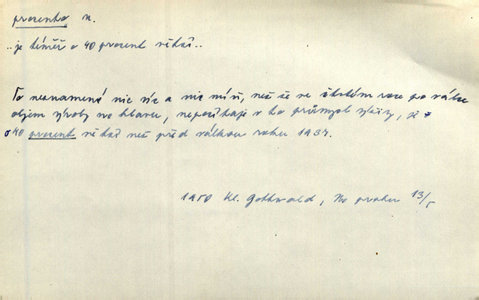 procento n.
..je téměř o 40 procent větší..
To neznamená nic víc a nic míň, než že ve čtvrtém roce po válce
objem výroby na hlavu, nepočítaje v to průmysl výživy, je
o 40 procent větší než před válkou roku 1937.
1950 Kl. Gottwald, Na prahu 13/5